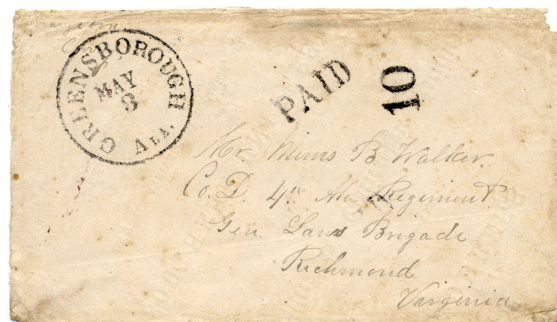 GREENSBOROUGH
MAY
8
ALA.
PAID
10
Mr. Mims B Walker
Co. D. 4th Ala Regiment
Gen. Laws Brigade
Richmond
Virginia